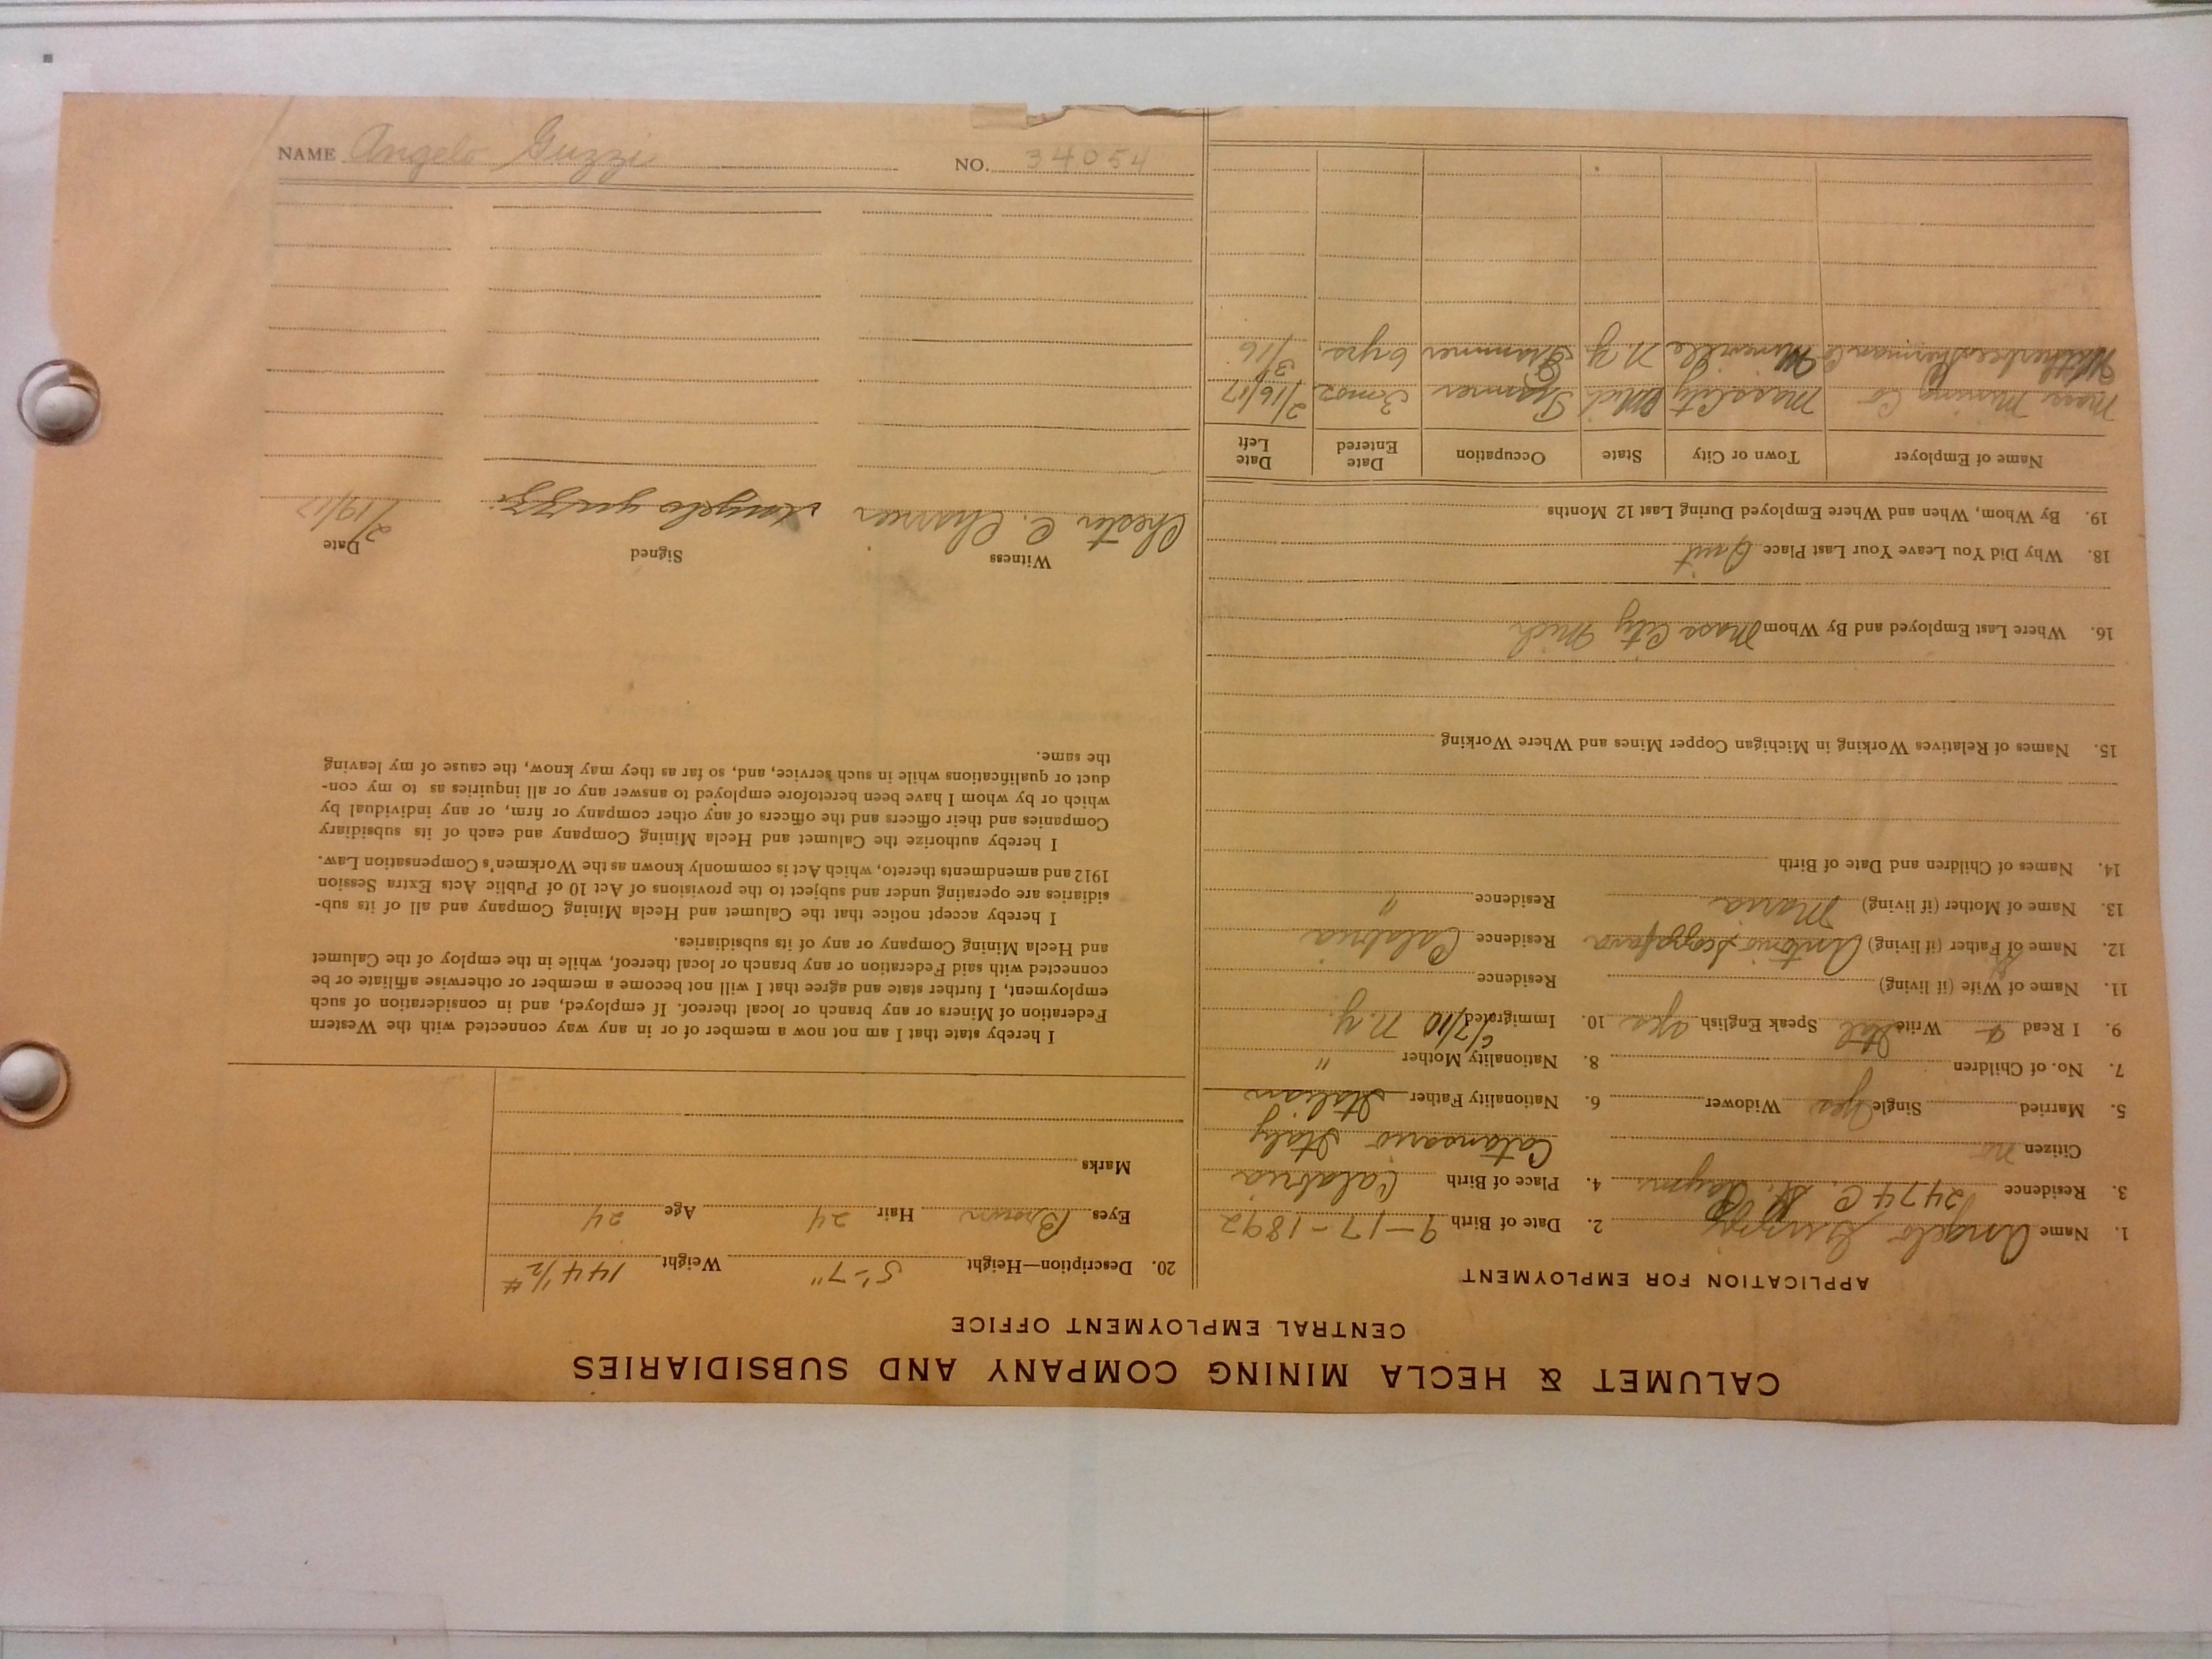 CALUMET & HECLA MINING COMPANY AND SUBSIDIARIES
CENTRAL EMPLOYMENT OFFICE
APPLICATION FOR EMPLOYMENT
1. Name Angelo Guzzi 2. Date of Birth 9-17-1892
3. Residence 2474 C. St. 4. Place of Birth Calabria
Citizen no Catansario Italy
5. Married Single Yes Widower 6. Nationality Father Italian
7. No. of Children 8. Nationality Mother "
9. I Read & Write Ital Speak English Yes 10. Immigrated 6/7/10 N.Y.
11. Name of Wife (if living) Residence
12. Name of Father (if living) Antonio Residence Calabria
13. Name of Mother (if living) Maria Residence "
14. Names of Children and Date of Birth
15. Names of Relatives Working in Michigan Copper Mines and Where Working
16. Where Last Employed and By Whom Mass City Mich
18. Why Did You Leave Your Last Place Quit
19. By Whom, When and Where Employed During Last 12 Months
Name of Employer Town or City State Occupation Date Entered Date Left
Mass Mining Co Mass City Mich Trammer 3 mos 2/16/17
Witherbee Sherman Co Mineville N.Y. Trammer 6 yrs. 3/16
20. Description—Height 5'-7" Weight 144 1/2 #
Eyes Brown Hair 24 Age 24
Marks
I hereby state that I am not now a member of or in any way connected with the Western
Federation of Miners or any branch or local thereof. If employed, and in consideration of such
employment, I further state and agree that I will not become a member or otherwise affiliate or be
connected with said Federation or any branch or local thereof, while in the employ of the Calumet
and Hecla Mining Company or any of its subsidiaries.
I hereby accept notice that the Calumet and Hecla Mining Company and all of its sub-
sidiaries are operating under and subject to the provisions of Act 10 of Public Acts Extra Session
1912 and amendments thereto, which Act is commonly known as the Workmen's Compensation Law.
I hereby authorize the Calumet and Hecla Mining Company and each of its subsidiary
Companies and their officers and the officers of any other company or firm, or any individual by
which or by whom I have been heretofore employed to answer any or all inquiries as to my con-
duct or qualifications while in such service, and, so far as they may know, the cause of my leaving
the same.
Witness Signed Date
Chester C. Angelo guzzi 2/19/17
NAME Angelo Guzzi NO. 34054